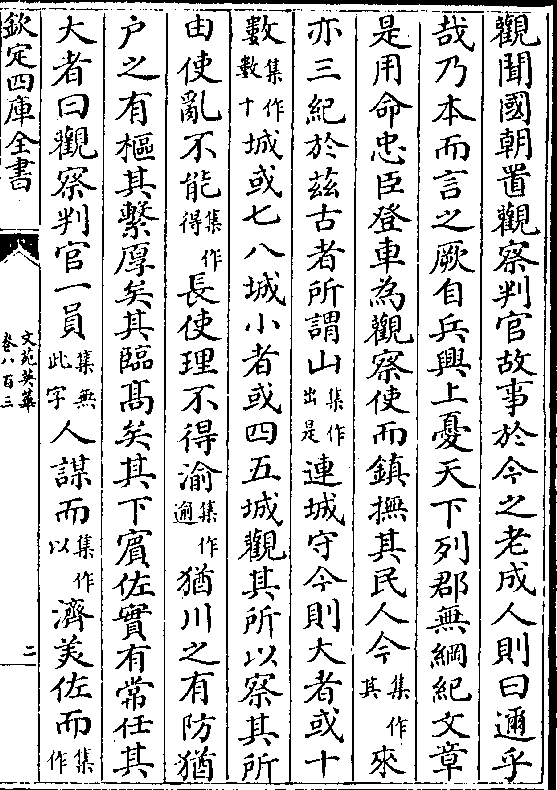 觀聞國朝置觀察判官故事於今之老成人則曰邇乎
哉乃本而言之厥自兵興上憂天下列郡無綱紀文章
是用命忠臣登車為觀察使而鎮撫其民人今集作其來
亦三紀於茲古者所謂山集作出是連城守今則大者或十
數集作數十城或七八城小者或四五城觀其所以察其所
由使亂不能集作得長使理不得渝集作邇猶川之有防猶
户之有樞其繫厚矣其臨髙矣其下賓佐實有常任其
大者曰觀察判官一員集無此字人謀而集作以濟美佐而集作
欽定四庫全書
文苑英華
卷八百三
二